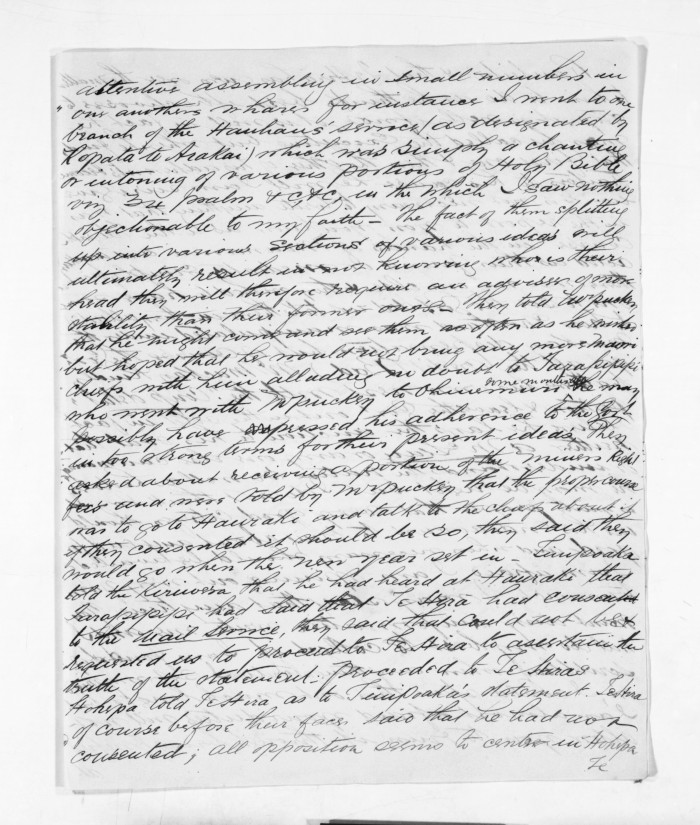 attentive assembling in small numbers in
one anothers whares for instance I went to one
branch of the Hauhaus service (as designated by
Ropata te Arakai) which was simply a chanting
or intoning of various portions of Holy Bible
viz 34 psalm &c &c, in the which I saw nothing
objectionable to my faith - the fact of them splitting
up into various sections of various ideas will
ultimately result in not knowing who is their
head they will therefore require an adviser of more
stability than their former ones - They told Mr Puckey
that he might come and see them as often as he wishes
but hoped that he would not bring any more Maori
chiefs with him alluding no doubt to Tarapipipi
who went with Mr Puckey to Ohinemuri some months ago he may
possibly have expressed his adherence to the Govt
in too strong terms for their present ideas, They
asked about receiving a portion of the miners Right
fees and were told by Mr Puckey that the proper course
was to go to Hauraki and talk to the chiefs about it
if they consented it should be so, they said they
would go when the new year set in -
told the Kiriwera that he had heard at Hauraki that
Tarapipipi had said that Te Hira had consented
to the Mail Service, they said that could not be &
requested us to proceed to Te Hira to ascertain the
truth of the statement: proceeded to Te Hiras
Hohepa told Te Hira as to statement. Te Hira
of course before their faces said that he had not
consented; all opposition seems to centre in Hohepa
Te